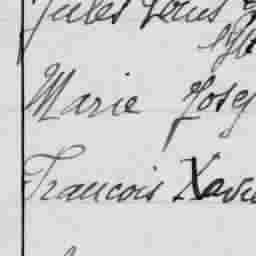 Jules Louis
Marie Josep
Francois Xavie